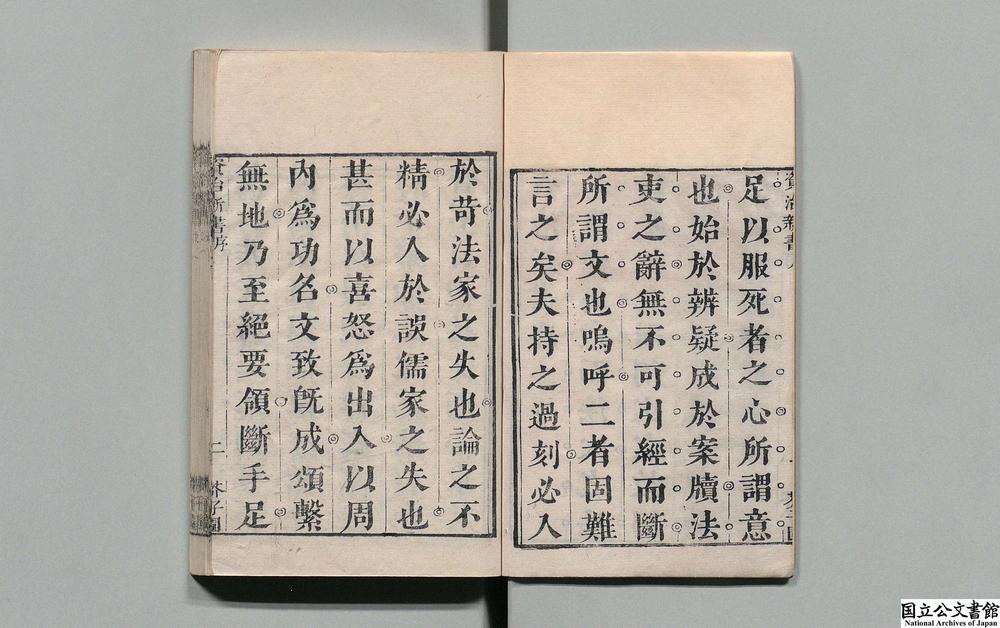 足以服死者之心所謂意
也始於辨疑成於案牘法
吏之辭無不可引經而斷
所謂文也嗚呼二者固難
言之矣夫持之過刻必入
於苛法家之失也論之不
精必入於誤儒家之失也
甚而以喜怒爲出入以周
內爲功名文致旣成頌繫
無地乃至絕要領斷手足
二
芥子園
国立公文書館
National Archives of Japan